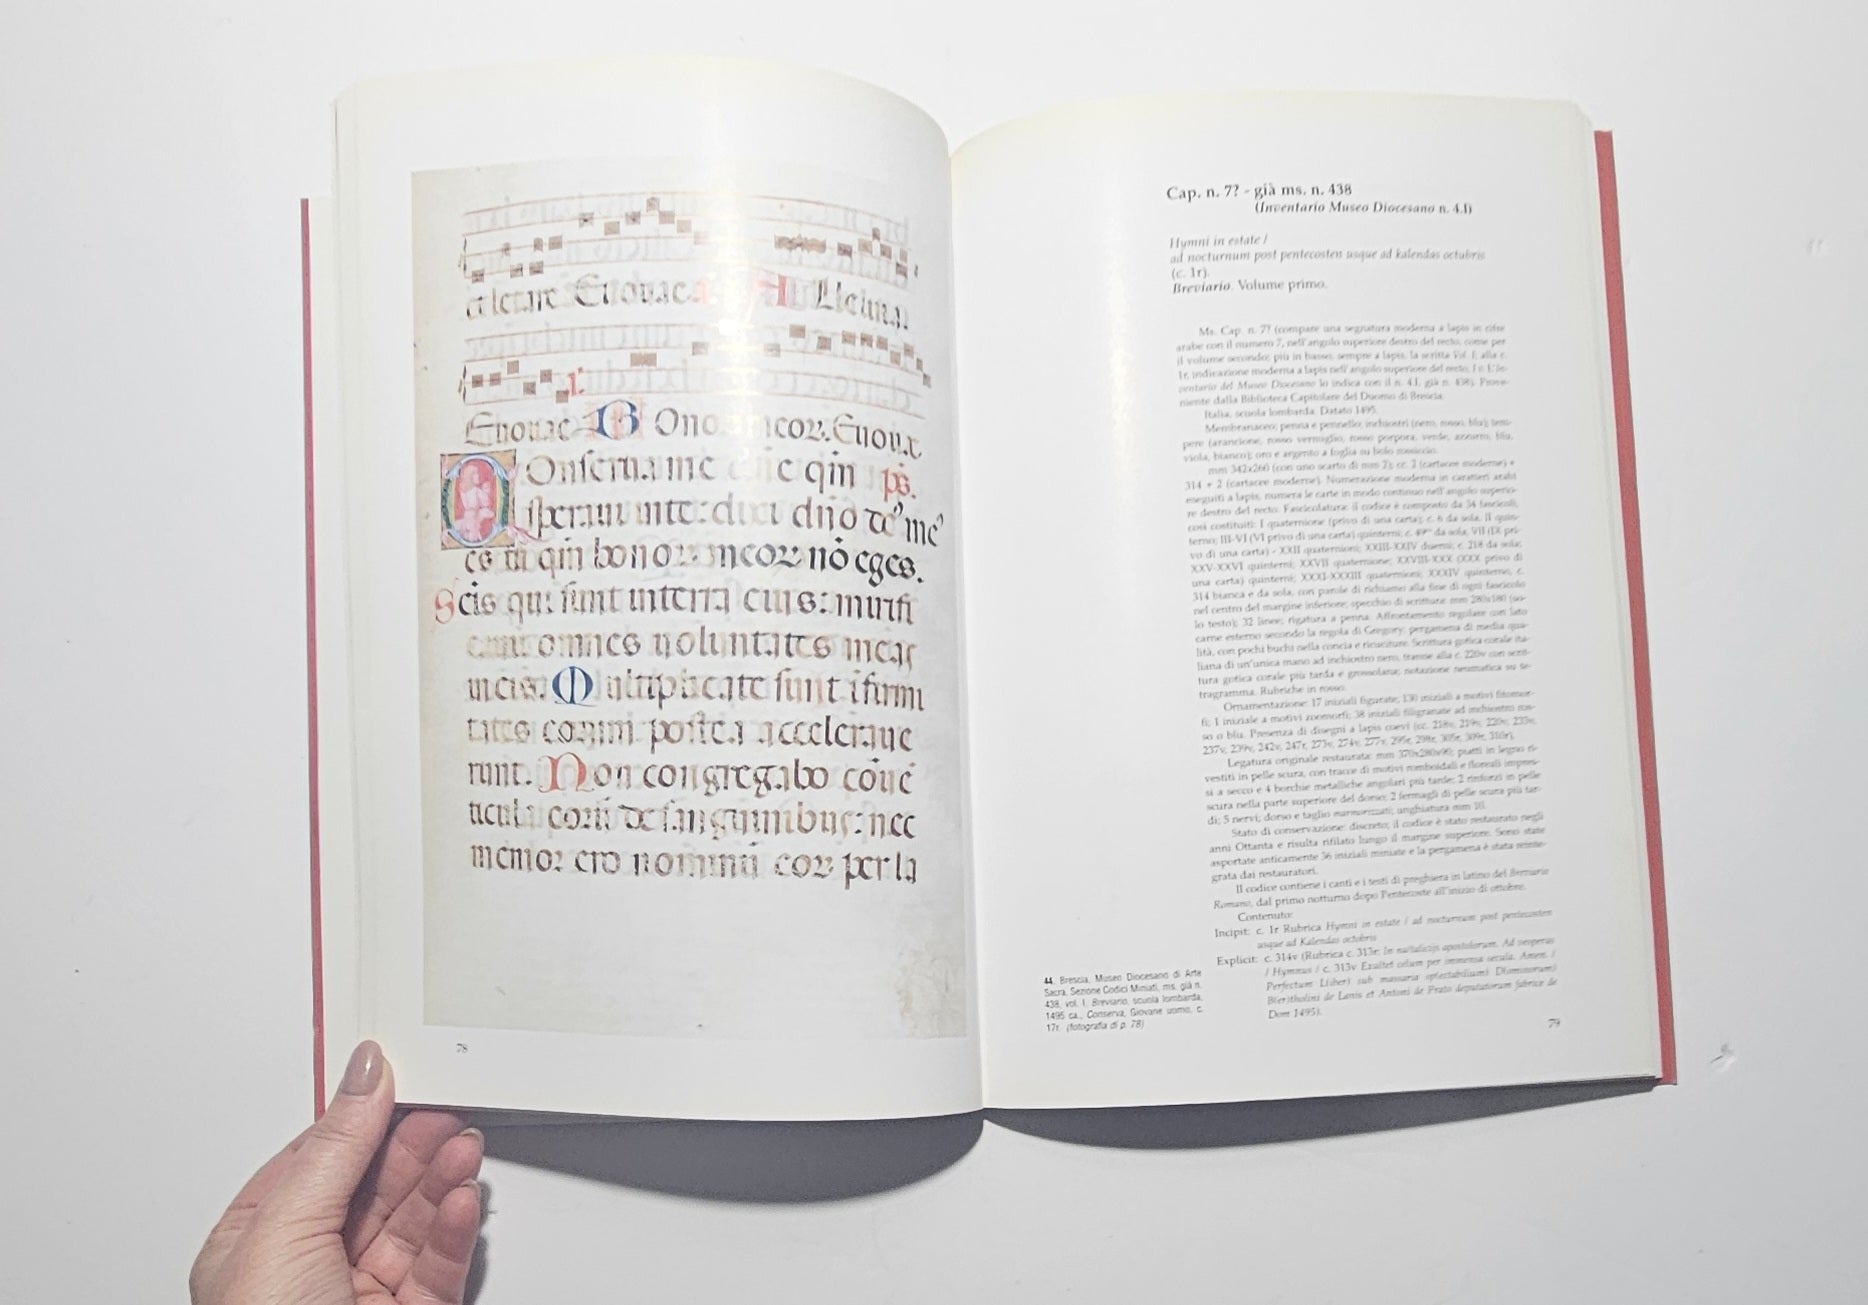 celetare Euouae. Alleluia.
Euouae Bonorum meor. Euouae
Onserua me dne qm ps.
speraui in te: dixi dno de' me'
es tu qm bonor meor no eges.
Scis qui sunt in terra eius: mirifi
cauit omnes uoluntates meas
in eis. Multiplicate sunt ifirmi
tates eorum postea accelerauē
runt. Non congregabo cōuē
ticula eorū de sanguinibus: nec
memor ero nominū eor per la
78
Cap. n. 7? - già ms. n. 438
(Inventario Museo Diocesano n. 4.I)
Hymni in estate /
ad nocturnum post pentecosten usque ad kalendas octubris
(c. 1r).
Breviario. Volume primo.
Ms. Cap. n. 7? (compare una segnatura moderna a lapis in cifre
arabe con il numero 7, nell'angolo superiore destro del recto, come per
il volume secondo; più in basso, sempre a lapis, la scritta Vol. I; alla c.
1r, indicazione moderna a lapis nell'angolo superiore del recto, I v. L'In-
ventario del Museo Diocesano lo indica con il n. 4.I, già n. 438). Prove-
niente dalla Biblioteca Capitolare del Duomo di Brescia.
Italia, scuola lombarda. Datato 1495.
Membranaceo; penna e pennello; inchiostri (nero, rosso, blu); tem-
pere (arancione, rosso vermiglio, rosso porpora, verde, azzurro, blu,
viola, bianco); oro e argento a foglia su bolo rossiccio.
mm 342x260 (con uno scarto di mm 2); cc. 2 (cartacee moderne) +
314 + 2 (cartacee moderne). Numerazione moderna in caratteri arabi
eseguiti a lapis, numera le carte in modo continuo nell'angolo superio-
re destro del recto. Fascicolatura: il codice è composto da 34 fascicoli,
così costituiti: I quaternione (privo di una carta); c. 8 da sola, II quin-
terno; III-VI (VI privo di una carta) quinterni; c. da sola, VII (IX pri-
vo di una carta) - XXII quaternioni; XXIII-XXIV duerni; c. 218 da sola;
XXV-XXVI quinterni; XXVII quaternione; XXVIII-XXX (XXX privo di
una carta) quinterni; XXXI-XXXIII quaternioni; XXXIV quinterno, c.
314 bianca e da sola, con parole di richiamo alla fine di ogni fascicolo
nel centro del margine inferiore; specchio di scrittura: mm 280x180 (so-
lo testo); 32 linee; rigatura a penna. Affrontamento regolare con lato
carne esterno secondo la regola di Gregory; pergamena di media qua-
lità, con pochi buchi nella concia e ricuciture. Scrittura gotica corale ita-
liana di un'unica mano ad inchiostro nero, tranne alla c. 220v con scrit-
tura gotica corale più tarda e grossolana; notazione neumatica su te-
tragramma. Rubriche in rosso.
Ornamentazione: 17 iniziali figurate; 130 iniziali a motivi fitomor-
fi; 1 iniziale a motivi zoomorfi; 38 iniziali filigranate ad inchiostro ros-
so o blu. Presenza di disegni a lapis coevi (cc. 218v, 219v, 220v, 233v,
237v, 239v, 242v, 247r, 273v, 274v, 277v, 295r, 298r, 305r, 309r, 310r).
Legatura originale restaurata: mm 370x280x90; piatti in legno ri-
vestiti in pelle scura, con tracce di motivi romboidali e floreali impres-
si a secco e 4 borchie metalliche angolari più tarde; 2 rinforzi in pelle
scura nella parte superiore del dorso; 2 fermagli di pelle scura più tar-
di; 5 nervi; dorso e taglio marmorizzati; unghiatura mm 10.
Stato di conservazione: discreto; il codice è stato restaurato negli
anni Ottanta e risulta rifilato lungo il margine superiore. Sono state
asportate anticamente 36 iniziali miniate e la pergamena è stata reinte-
grata dai restauratori.
Il codice contiene i canti e i testi di preghiera in latino del Breviario
Romano, dal primo notturno dopo Pentecoste all'inizio di ottobre.
Contenuto:
Incipit: c. 1r Rubrica Hymni in estate / ad nocturnum post pentecosten
usque ad Kalendas octobris
Explicit: c. 314v (Rubrica c. 313r: In nataliciis apostolorum. Ad vesperas
/ Hymnus / c. 313v Exultet celum per immensa secula. Amen. /
Perfectum L(iber) sub massaria sp(ectabilium) D(ominorum)
B(er)tholini de Lanis et Antoni de Prato deputatorum fabrice de
Dom 1495).
44. Brescia, Museo Diocesano di Arte
Sacra, Sezione Codici Miniati, ms. già n.
438, vol. I, Breviario, scuola lombarda,
1495 ca., Conserva, Giovane uomo, c.
17r. (fotografia di p. 78)
79